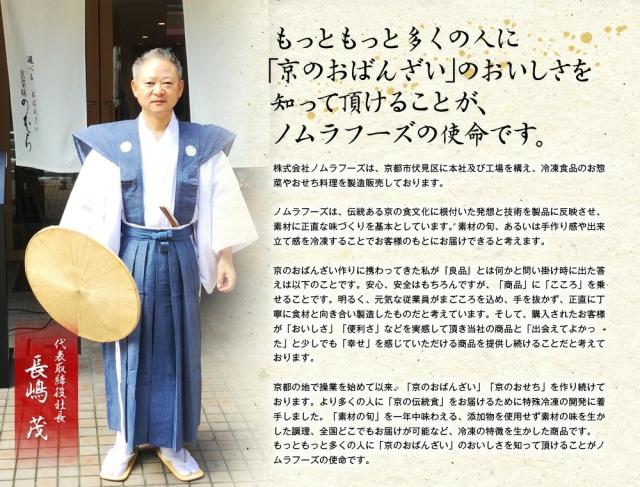 もっともっと多くの人に
「京のおばんざい」のおいしさを
知って頂けることが、
ノムラフーズの使命です。
株式会社ノムラフーズは、京都市伏見区に本社及び工場を構え、冷凍食品のお惣
菜やおせち料理を製造販売しております。
ノムラフーズは、伝統ある京の食文化に根付いた発想と技術を製品に反映させ、
素材に正直な味づくりを基本としています。素材の旬、あるいは手作り感や出来
立て感を冷凍することでお客様のもとにお届けできると考えます。
京のおばんざい作りに携わってきた私が『良品』とは何かと問い掛け時に出た答
えは以下のことです。安心、安全はもちろんですが、「商品」に「こころ」を乗
せることです。明るく、元気な従業員がまごころを込め、手を抜かず、正直に丁
寧に食材と向き合い製造したものだと考えています。そして、購入されたお客様
が「おいしさ」「便利さ」などを実感して頂き当社の商品と「出会えてよかっ
た」と少しでも「幸せ」を感じていただける商品を提供し続けることだと考えて
おります。
京都の地で操業を始めて以来、「京のおばんざい」「京のおせち」を作り続けて
おります。より多くの人に「京の伝統食」をお届けするために特殊冷凍の開発に着
手しました。「素材の旬」を一年中味わえる、添加物を使用せず素材の味を生か
した調理、全国どこでもお届けが可能など、冷凍の特徴を生かした商品です。
もっともっと多くの人に「京のおばんざい」のおいしさを知って頂けることがノ
ムラフーズの使命です。
選べる おばんざい
京菜味のむら
代表取締役社長
長嶋 茂